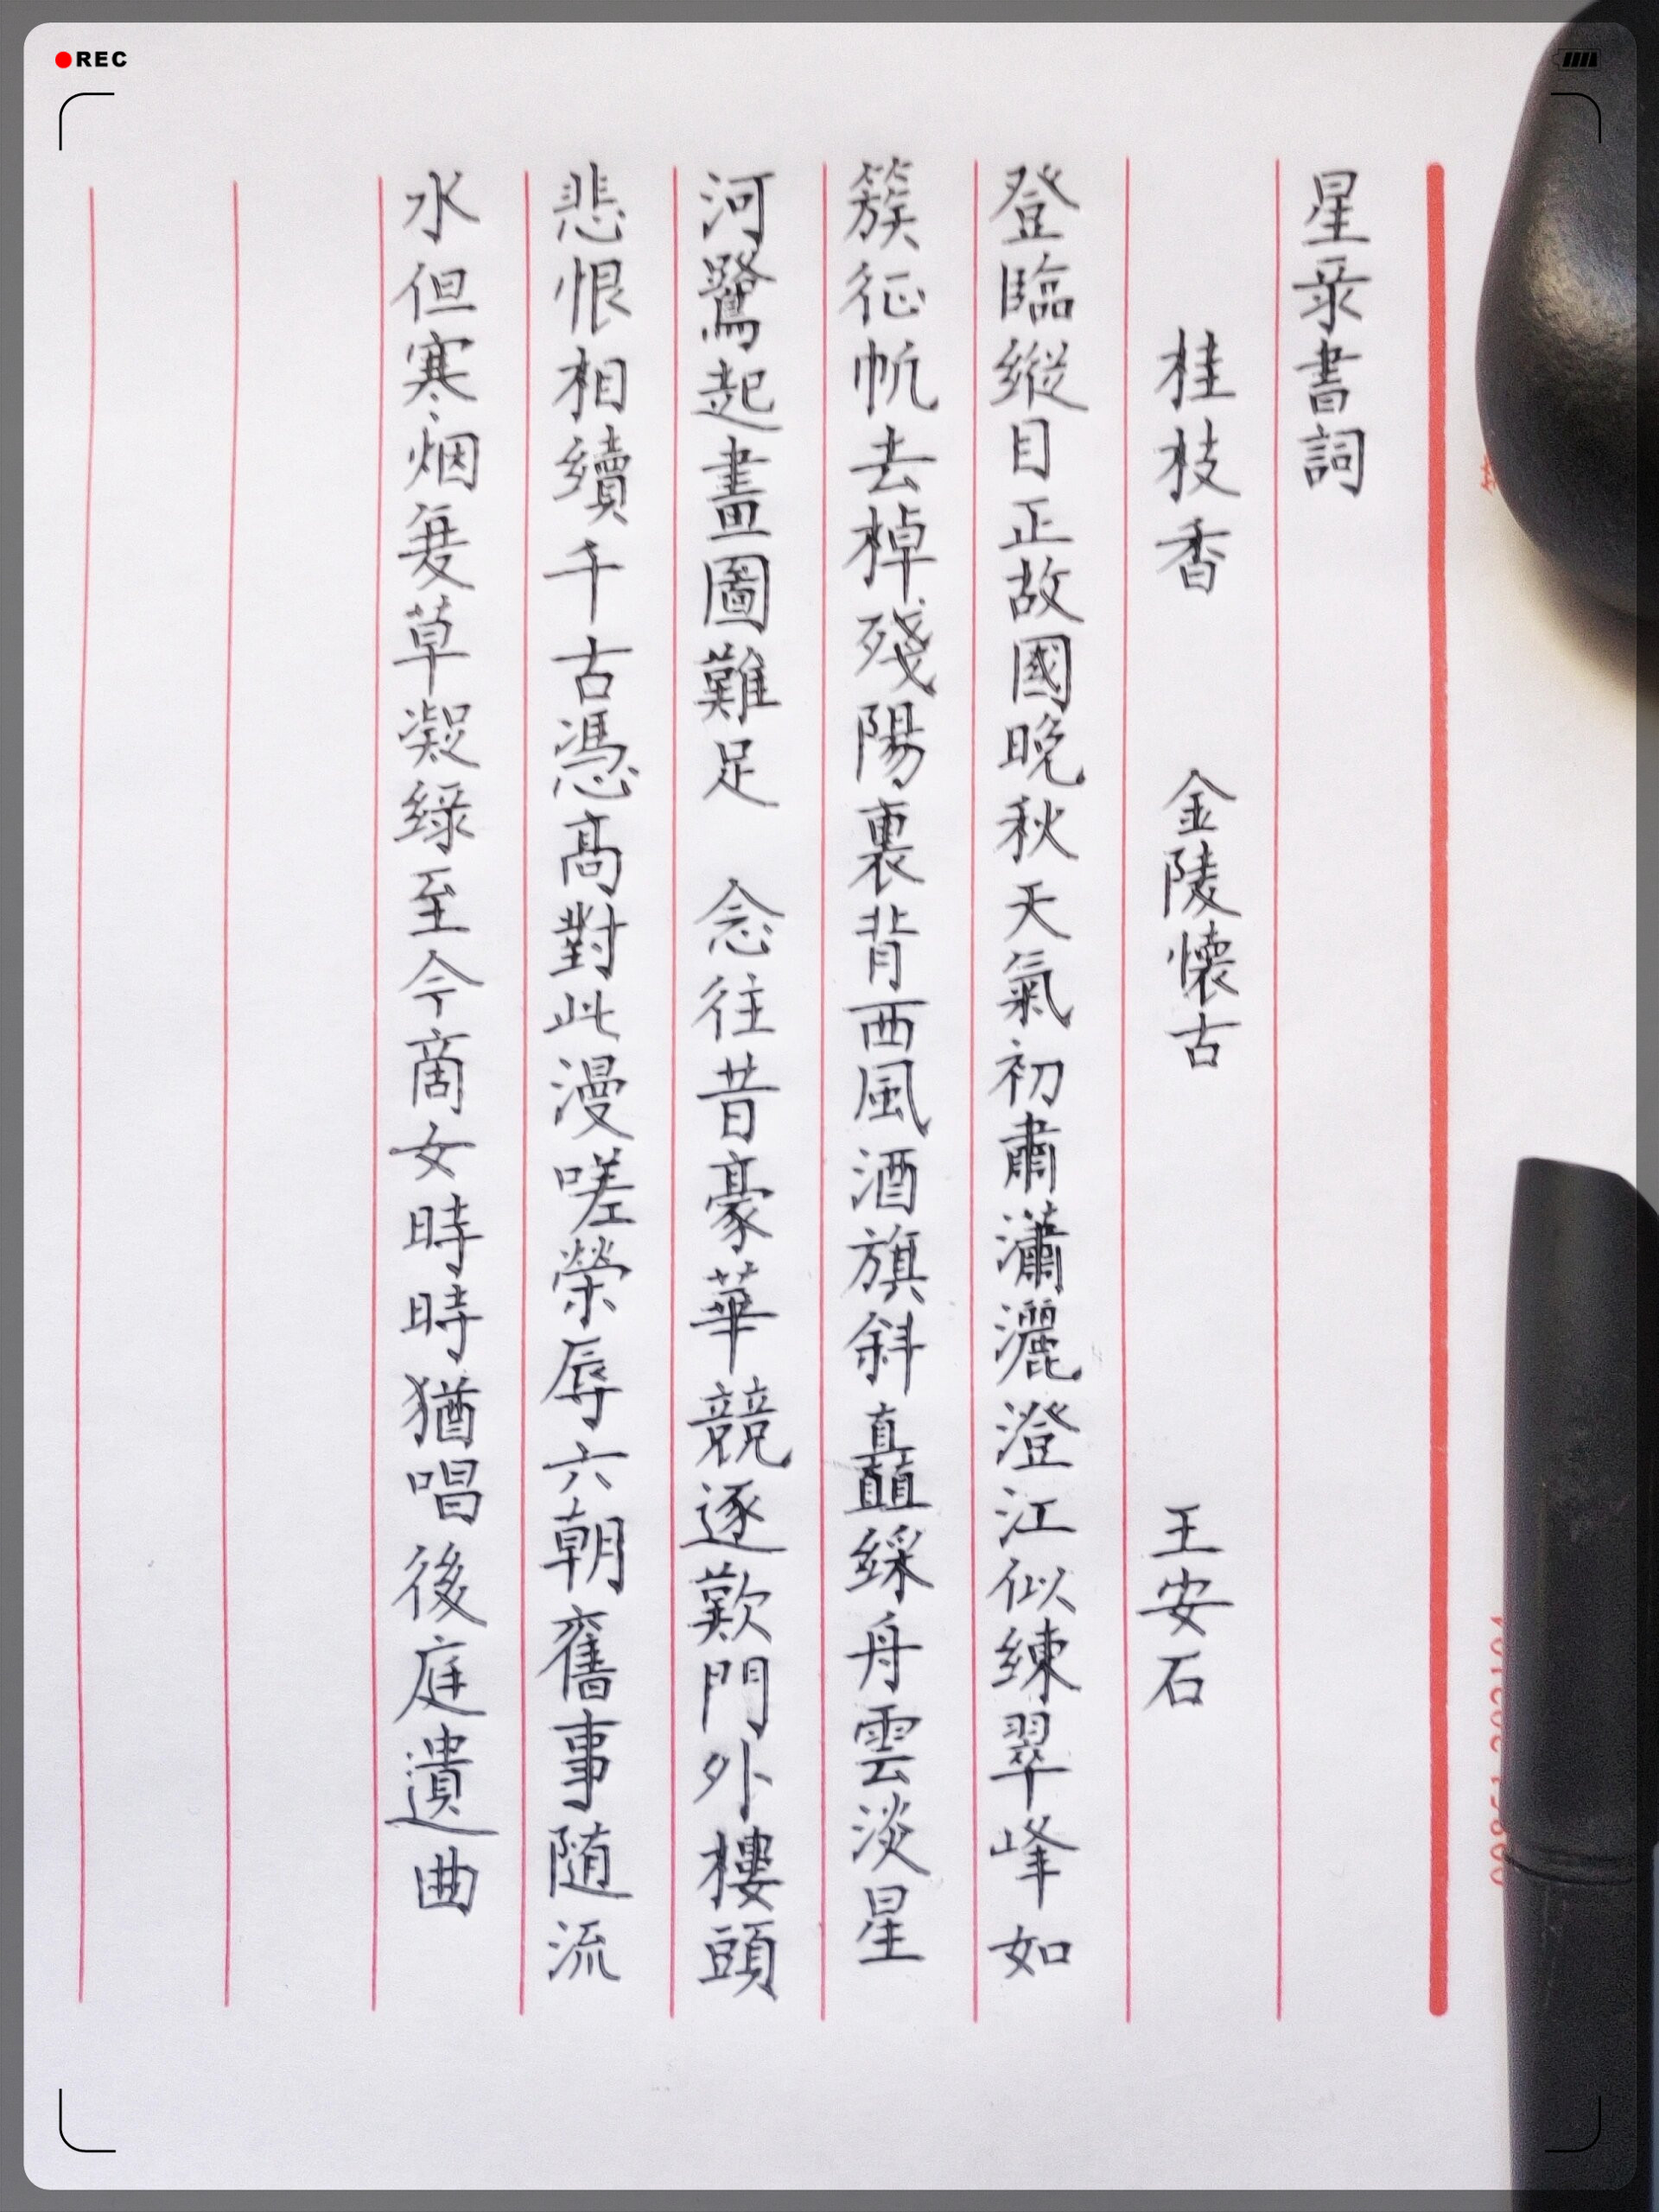 星彔書詞
桂枝香 金陵懷古 王安石
登臨縱目正故國晚秋天氣初肅瀟灑澄江似練翠峰如
簇征帆去棹殘陽裏背西風酒旗斜矗綵舟雲淡星
河鷺起畫圖難足 念往昔豪華競逐歎門外樓頭
悲恨相續千古憑高對此漫嗟榮辱六朝舊事隨流
水但寒烟蔓草凝綠至今商女時時猶唱後庭遺曲
REC